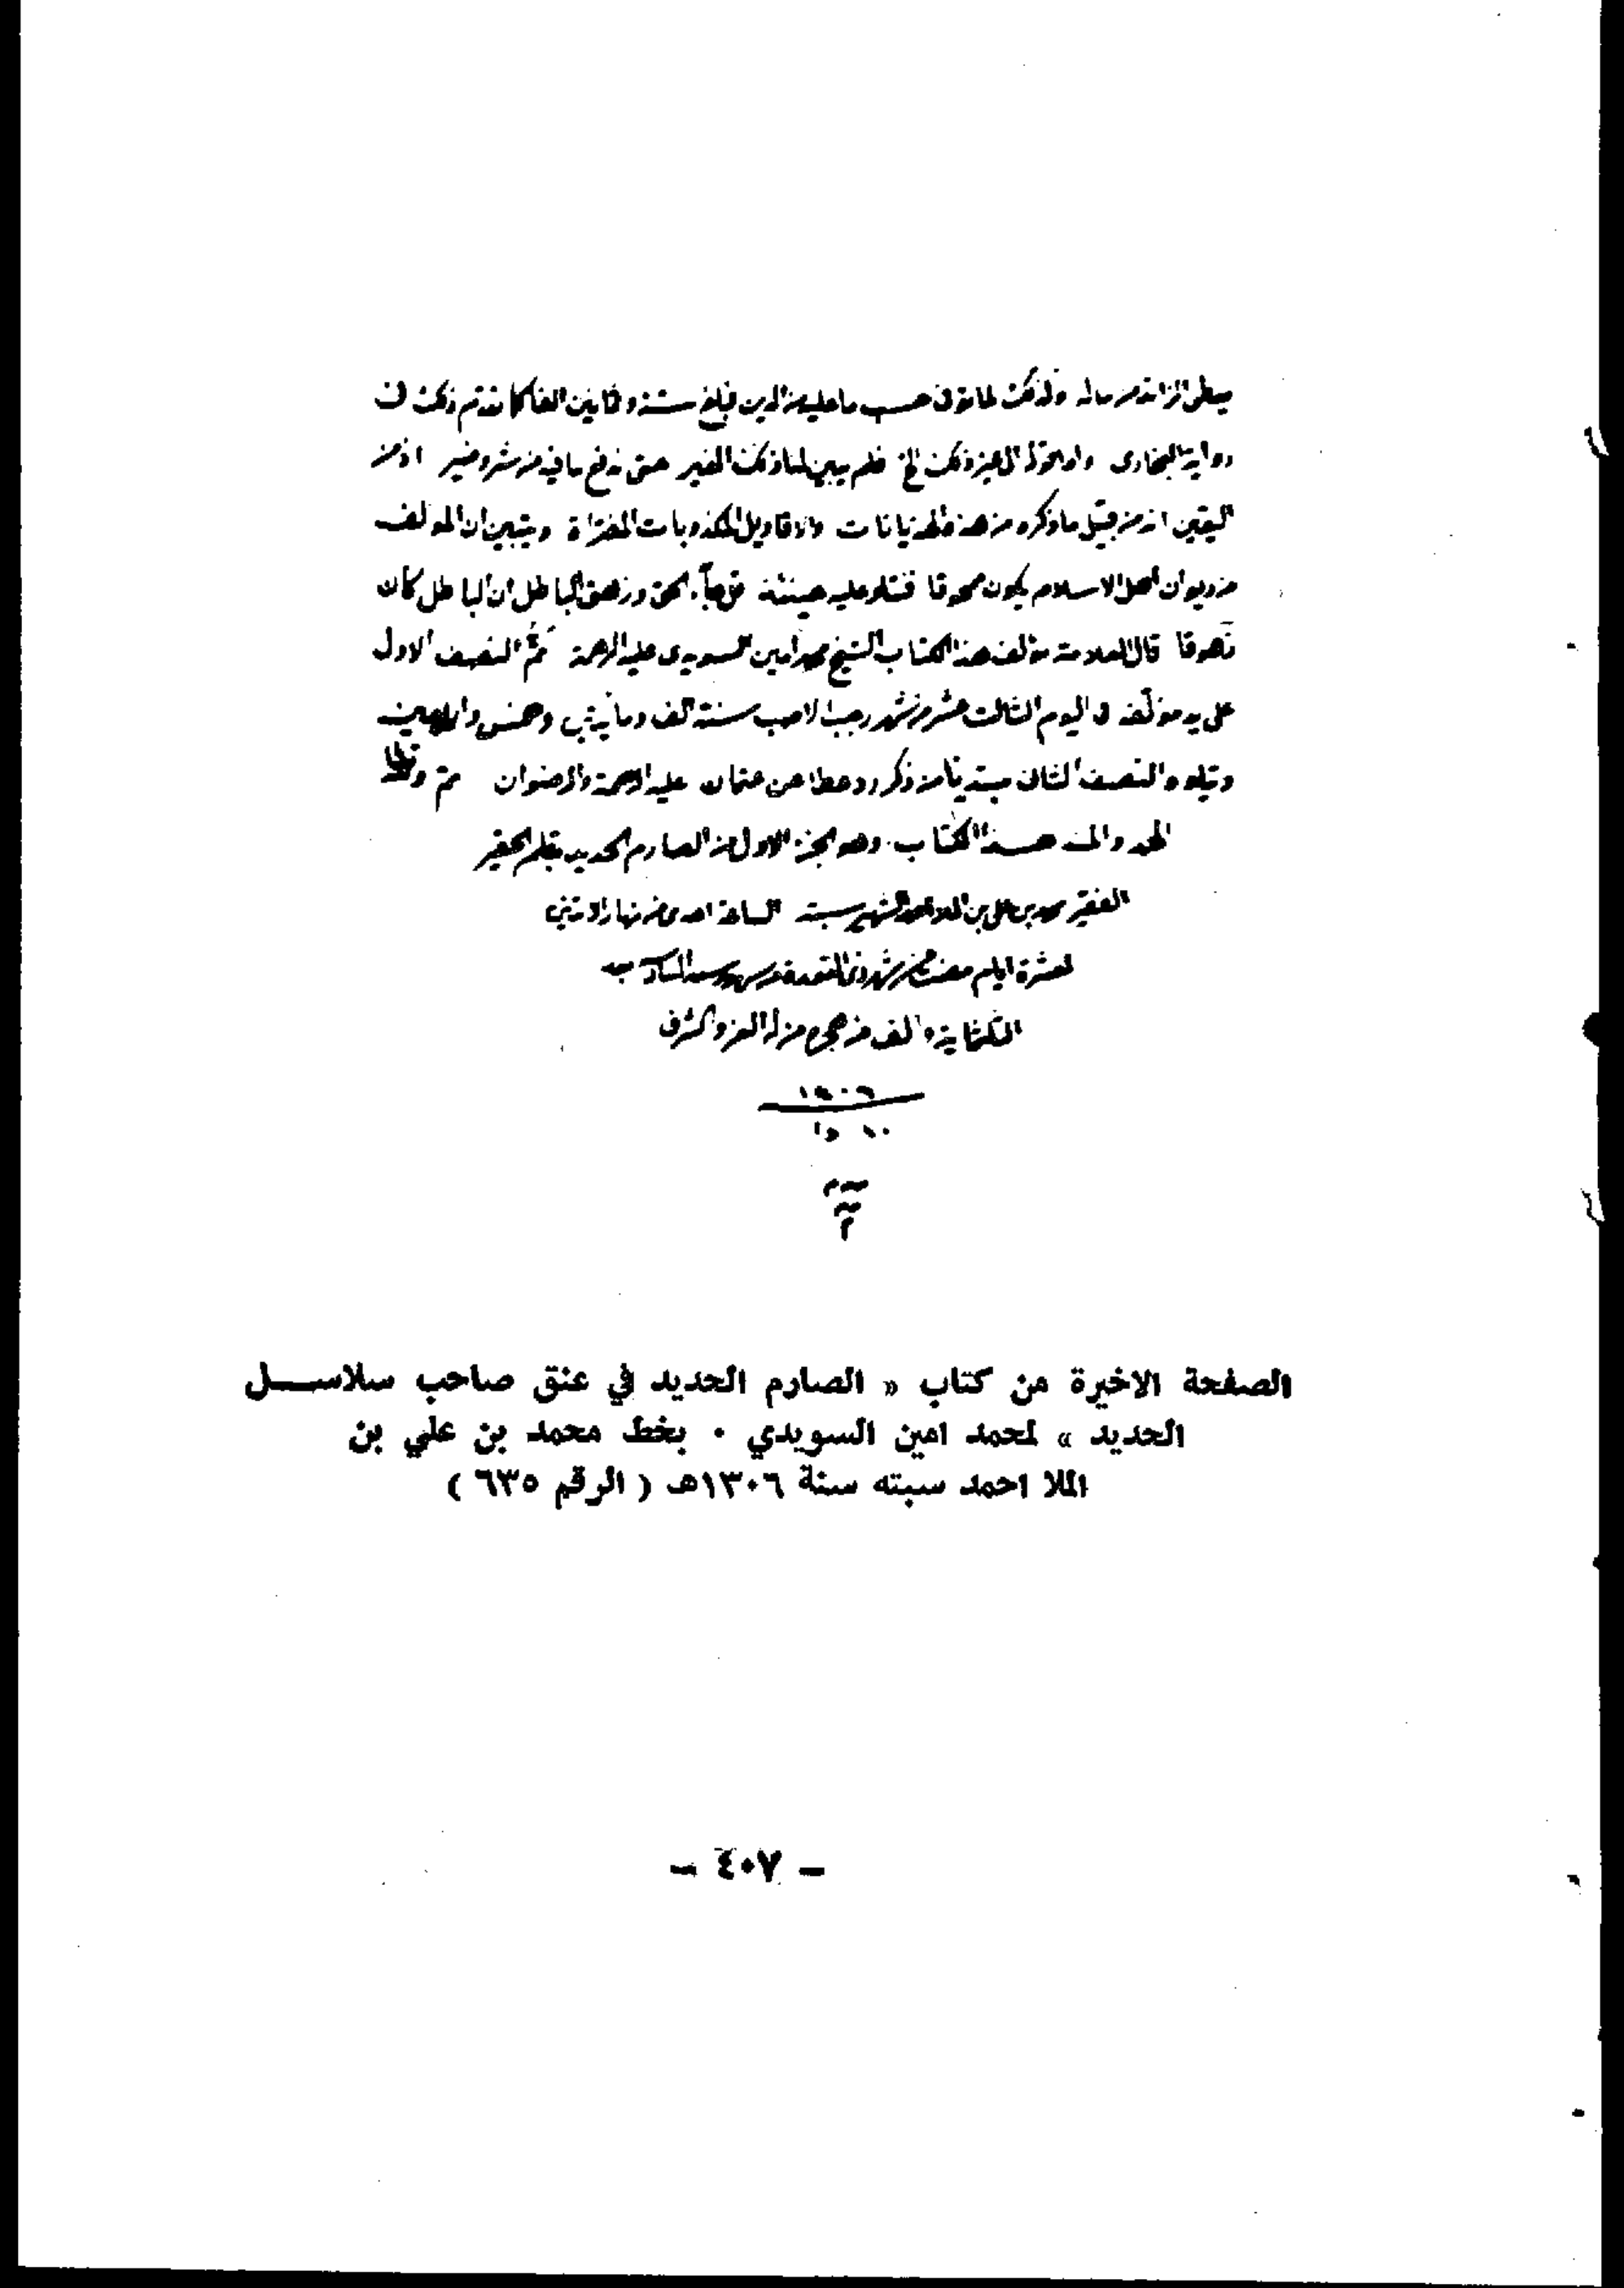 يعطى الزائد من ماله ولذلك لما توفى حسب ما عليه من الدين فبلغ ستة وثمانين الفا كما تقدم ذلك فى
رواية البخارى واما قوله الى غير ذلك الخ فلم يبين لنا ذلك الغير حتى ندفع ما فيه من شر وضير اذ من
اليقين انه من قبيل ما ذكره من هذه الهذيانات والاقاويل المكذوبات المفتراة ويتبين ان المؤلف
من ديوان اهل الاسلام يكون ممحوقا فنتلو عليه حينئذ قل جآء الحق وزهق الباطل ان الباطل كان
زهوقا قال العلامة مؤلف هذا الكتاب الشيخ محمد امين السويدى عليه الرحمة تمّ النصف الاول
على يد مؤلفه فى اليوم الثالث عشر من شهر رجب الاصب سنة الف ومأيتين وخمس واربعين
ويتلوه النصف الثانى مبتديا من ذكر رد مطاعن عثمان عليه الرحمة والرضوان تم
الحمد والمنه هذا الكتاب وهو الجزء الاول من الصارم الحديد بقلم الحقير
الفقير محمد بن على بن الملا احمد الشهير سبته الساعة احدى من نهار الاثنين
لعشرة ايام مضت من شهر ذى القعدة سنة
الثلثماية والف من هجرة من له العز والشرف
١٣٠٦
١٠ ذا
الصفحة الاخيرة من كتاب « الصارم الحديد في عنق صاحب سلاسل
الحديد » لمحمد امين السويدي . بخط محمد بن علي بن
الملا احمد سبته سنة ١٣٠٦هـ ( الرقم ٦٣٥ )
– ٤٠٧ –